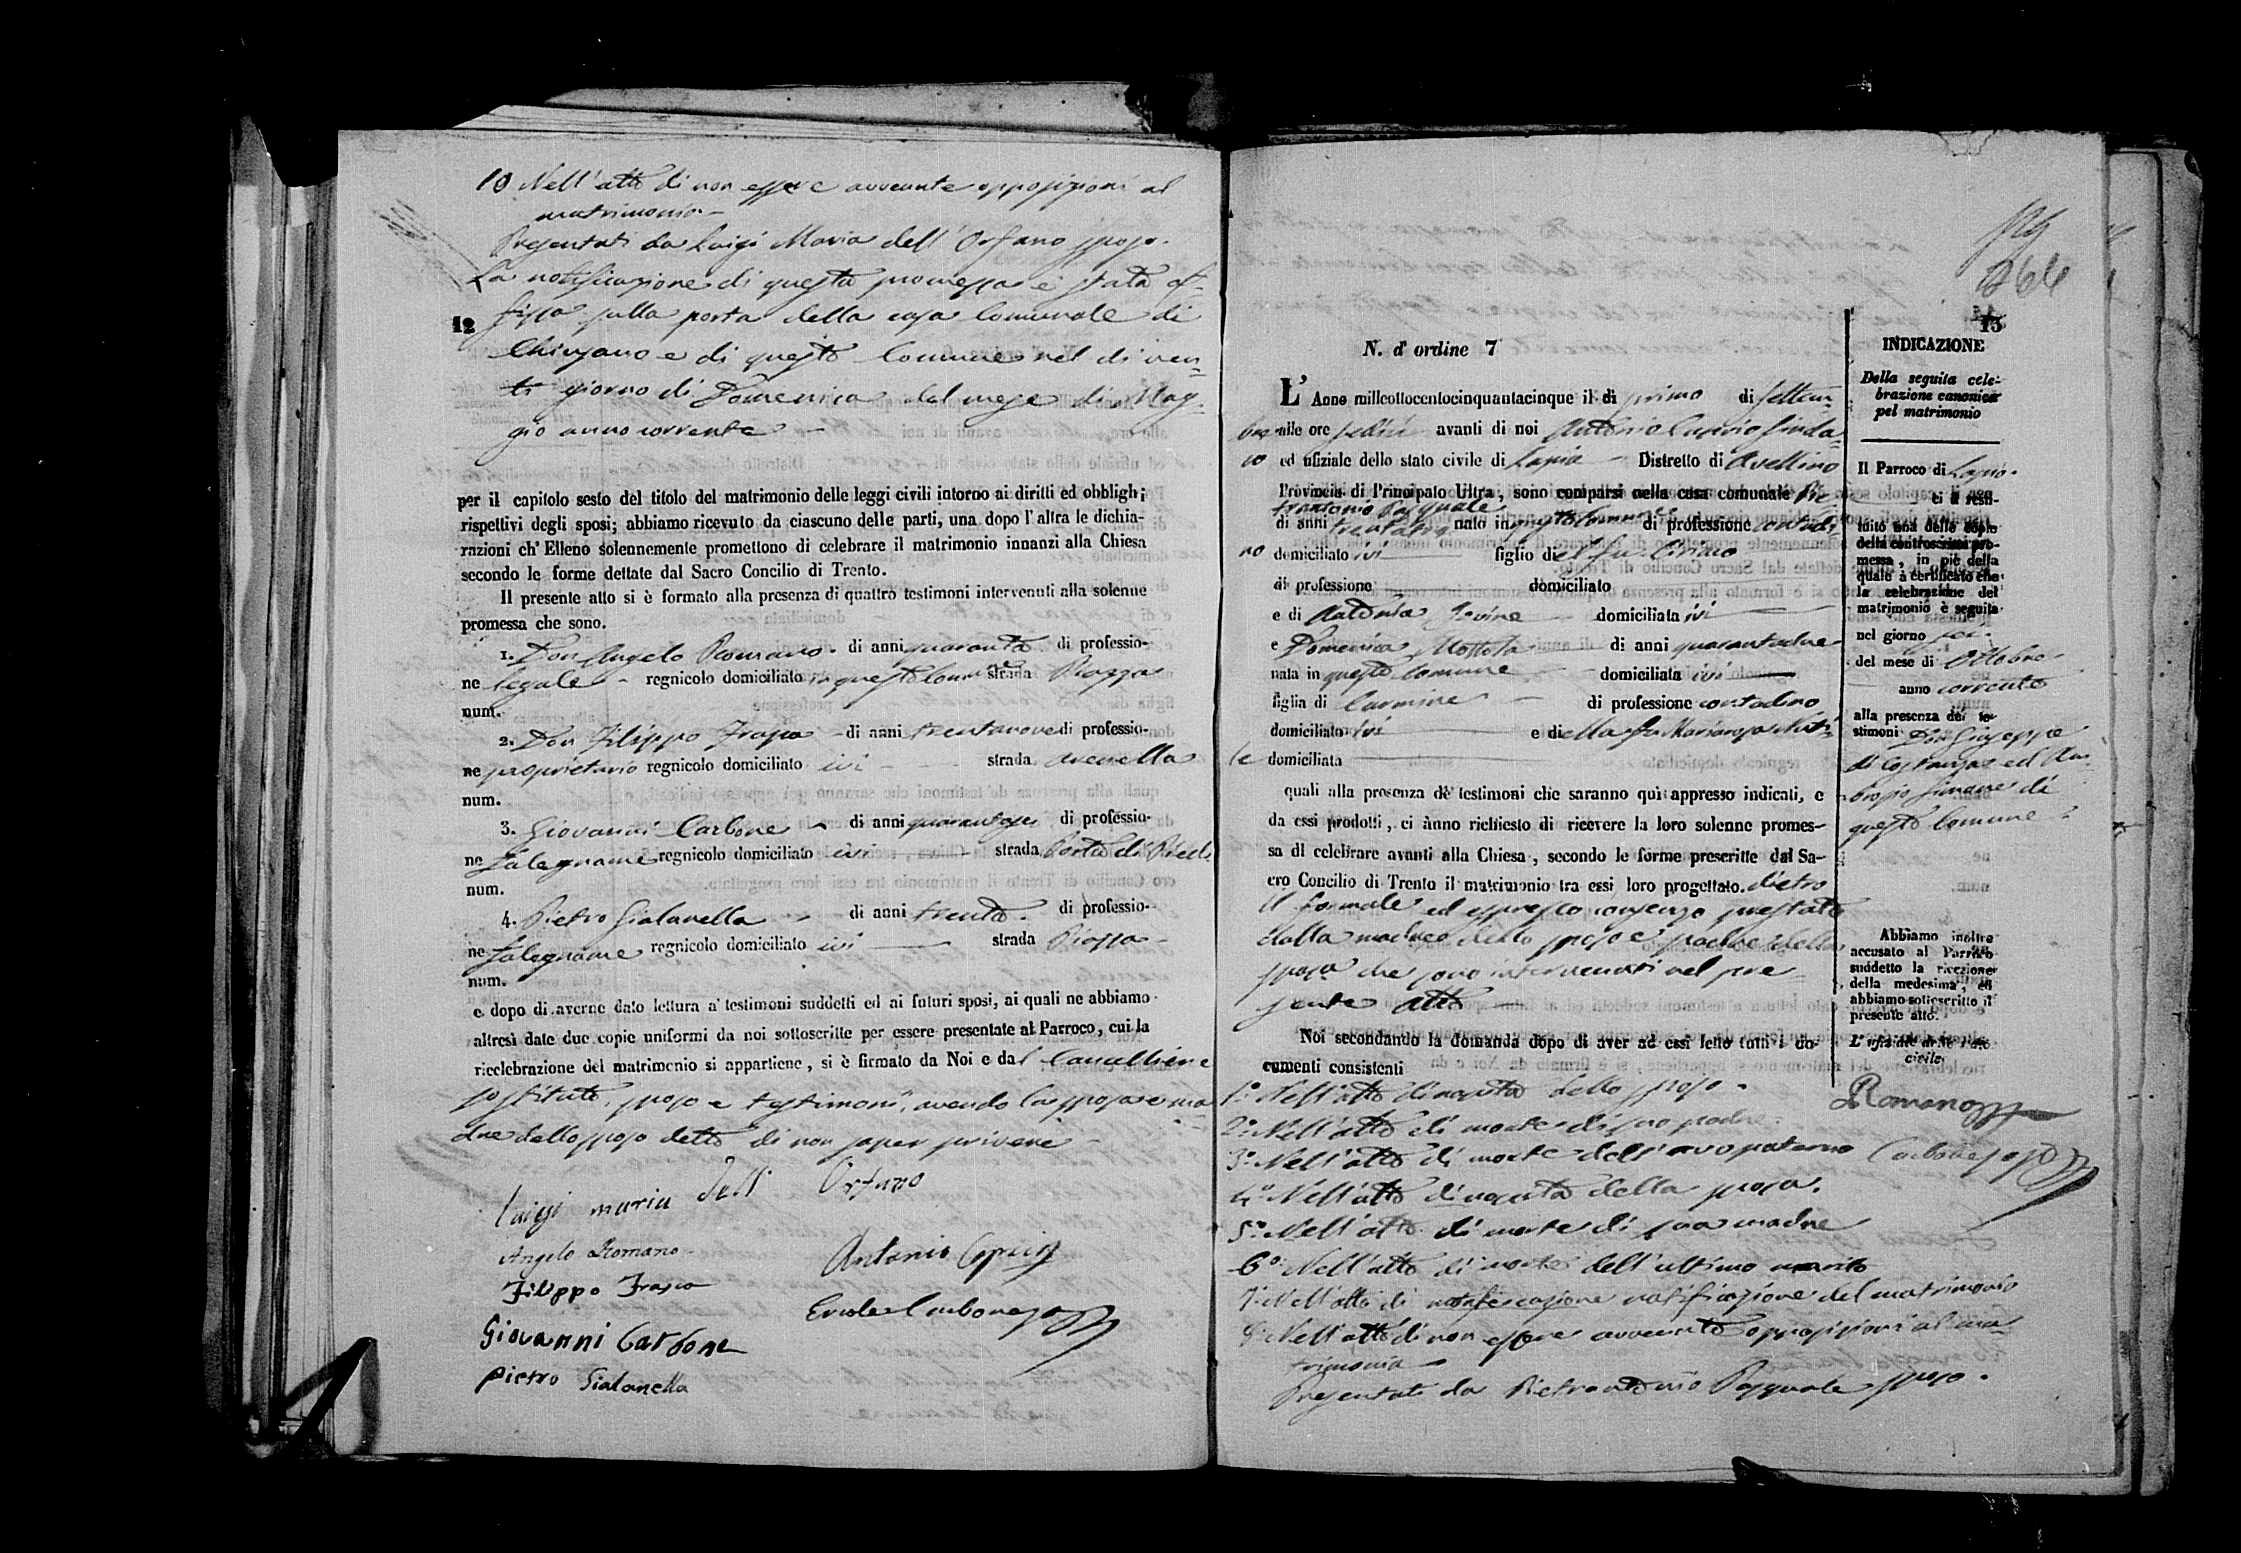 10 Nell'atto di non essere avvenute opposizioni al
matrimonio –
Presentati da Luigi Maria dell'Orfano sposo.
La notificazione di questa promessa è stata af=
12 fissa sulla porta della casa Comunale di
Chiusano e di questo Comune nel di ven=
ti giorno di Domenica del mese di Mag=
gio anno corrente –
per il capitolo sesto del titolo del matrimonio delle leggi civili intorno ai diritti ed obblighi
rispettivi degli sposi; abbiamo ricevuto da ciascuno delle parti, una dopo l'altra le dichia-
razioni ch' Elleno solennemente promettono di celebrare il matrimonio innanzi alla Chiesa
secondo le forme dettate dal Sacro Concilio di Trento.
Il presente atto si è formato alla presenza di quattro testimoni intervenuti alla solenne
promessa che sono.
1. Don Angelo Romano. di anni quaranta di professio-
ne legale – regnicolo domiciliato in questo Comune strada Piazza
num.
2. Don Filippo Frasca – di anni trentanove di professio-
ne proprietario regnicolo domiciliato ivi – strada
num.
3. Giovanni Carbone – di anni quarantasei di professio-
ne falegname regnicolo domiciliato ivi – strada Porta di
num.
4. Pietro Gialanella – di anni trenta. di professio-
ne falegname regnicolo domiciliato ivi — strada Piazza –
num.
e dopo di averne dato lettura a' testimoni suddetti ed ai futuri sposi, ai quali ne abbiamo
altresì date due copie uniformi da noi sottoscritte per essere presentate al Parroco, cui la
ricelebrazione del matrimonio si appartiene, si è firmato da Noi e dal Cancelliere
sostituto, sposo e testimoni, avendo la sposa e ma
dre dello sposo detto di non saper scrivere –
Luigi maria dell' Orfano
Angelo Romano
Antonio Caprio
Filippo Frasca
Ercole Carbone
Giovanni Carbone
Pietro Gialanella
264
13
N. d' ordine 7
L' Anno millottocentocinquantacinque il dì primo di Settem=
bre alle ore sedici avanti di noi Antonio Caprio Sinda=
co ed ufiziale dello stato civile di Lapio – Distretto di Avellino
Provincia di Principato Ultra, sono comparsi nella casa comunale Pie
trantonio Pasquale
di anni trentatre nato in questo Comune di professione contadi
no domiciliato ivi figlio del fu Ciriaco
di professione domiciliato
e di Antonia Iovine – domiciliata ivi
e Domenica – di anni quarantadue
nata in questo Comune – domiciliata ivi
figlia di Carmine – di professione contadino
domiciliato ivi e della fu Mariarosa
le domiciliata
quali alla presenza de' testimoni che saranno quì appresso indicati, e
da essi prodotti, ci ànno richiesto di ricevere la loro solenne promes-
sa di celebrare avanti alla Chiesa, secondo le forme prescritte dal Sa-
cro Concilio di Trento il matrimonio tra essi loro progettato. dietro
il formale ed espresso consenso prestato
dalla madre dello sposo e padre della
sposa che sono intervenuti nel pre=
sente atto
Noi secondando la domanda dopo di aver ad essi letto tutti i do-
cumenti consistenti
1º Nell'atto di nascita dello sposo.
2º Nell'atto di morte di suo padre.
3º Nell'atto di morte dell'avo paterno
4º Nell'atto di nascita della sposa.
5º Nell'atto di morte di sua madre
6º Nell'atto di morte dell'ultimo marito
7º Nell'atto di notificazione del matrimonio
8º Nell'atto di non essere avvenute opposizioni al ma=
trimonio –
Presentati da Pietrantonio Pasquale sposo.
INDICAZIONE
Della seguita cele-
brazione canonica
pel matrimonio
Il Parroco di Lapio
ci à resti-
tuito una delle copie
della controscritta pro-
messa, in piè della
quale à certificato che
la celebrazione del
matrimonio è seguita
nel giorno sei
del mese di Ottobre
anno corrente
alla presenza dei te-
stimoni Don Giuseppe
di Costanzo ed Am=
brogio Simone di
questo Comune
Abbiamo inoltre
accusato al Parroco
suddetto la ricezione
della medesima, ed
abbiamo sottoscritto il
presente atto.
L'ufiziale dello stato
civile.
Romano
Carbone